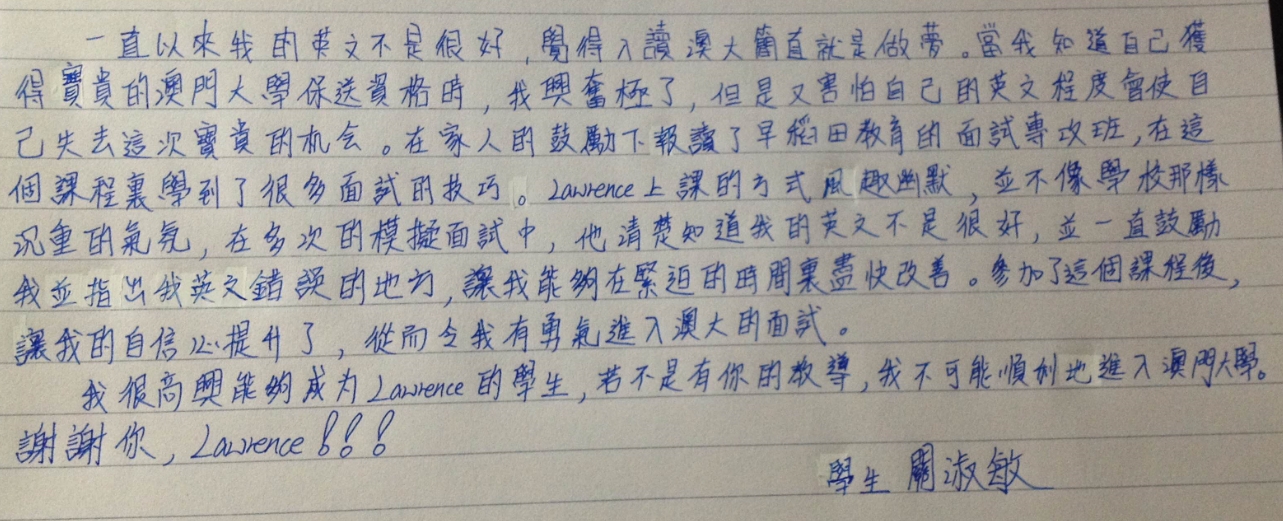 一直以來我的英文不是很好，覺得入讀澳大簡直就是做夢。當我知道自己獲
得寶貴的澳門大學保送資格時，我興奮極了，但是又害怕自己的英文程度會使自
己失去這次寶貴的机会。在家人的鼓勵下報讀了早稻田教育的面試專攻班，在這
個課程裏學到了很多面試的技巧。Lawrence上課的方式風趣幽默，並不像學校那樣
沉重的氣氛，在多次的模擬面試中，他清楚知道我的英文不是很好，並一直鼓勵
我並指出我英文錯誤的地方，讓我能夠在緊迫的時間裏盡快改善。參加了這個課程後，
讓我的自信心提升了，從而令我有勇氣進入澳大的面試。
我很高興能夠成为Lawrence的學生，若不是有你的教導，我不可能順利地進入澳門大學。
謝謝你，Lawrence！！！
學生 關淑敏